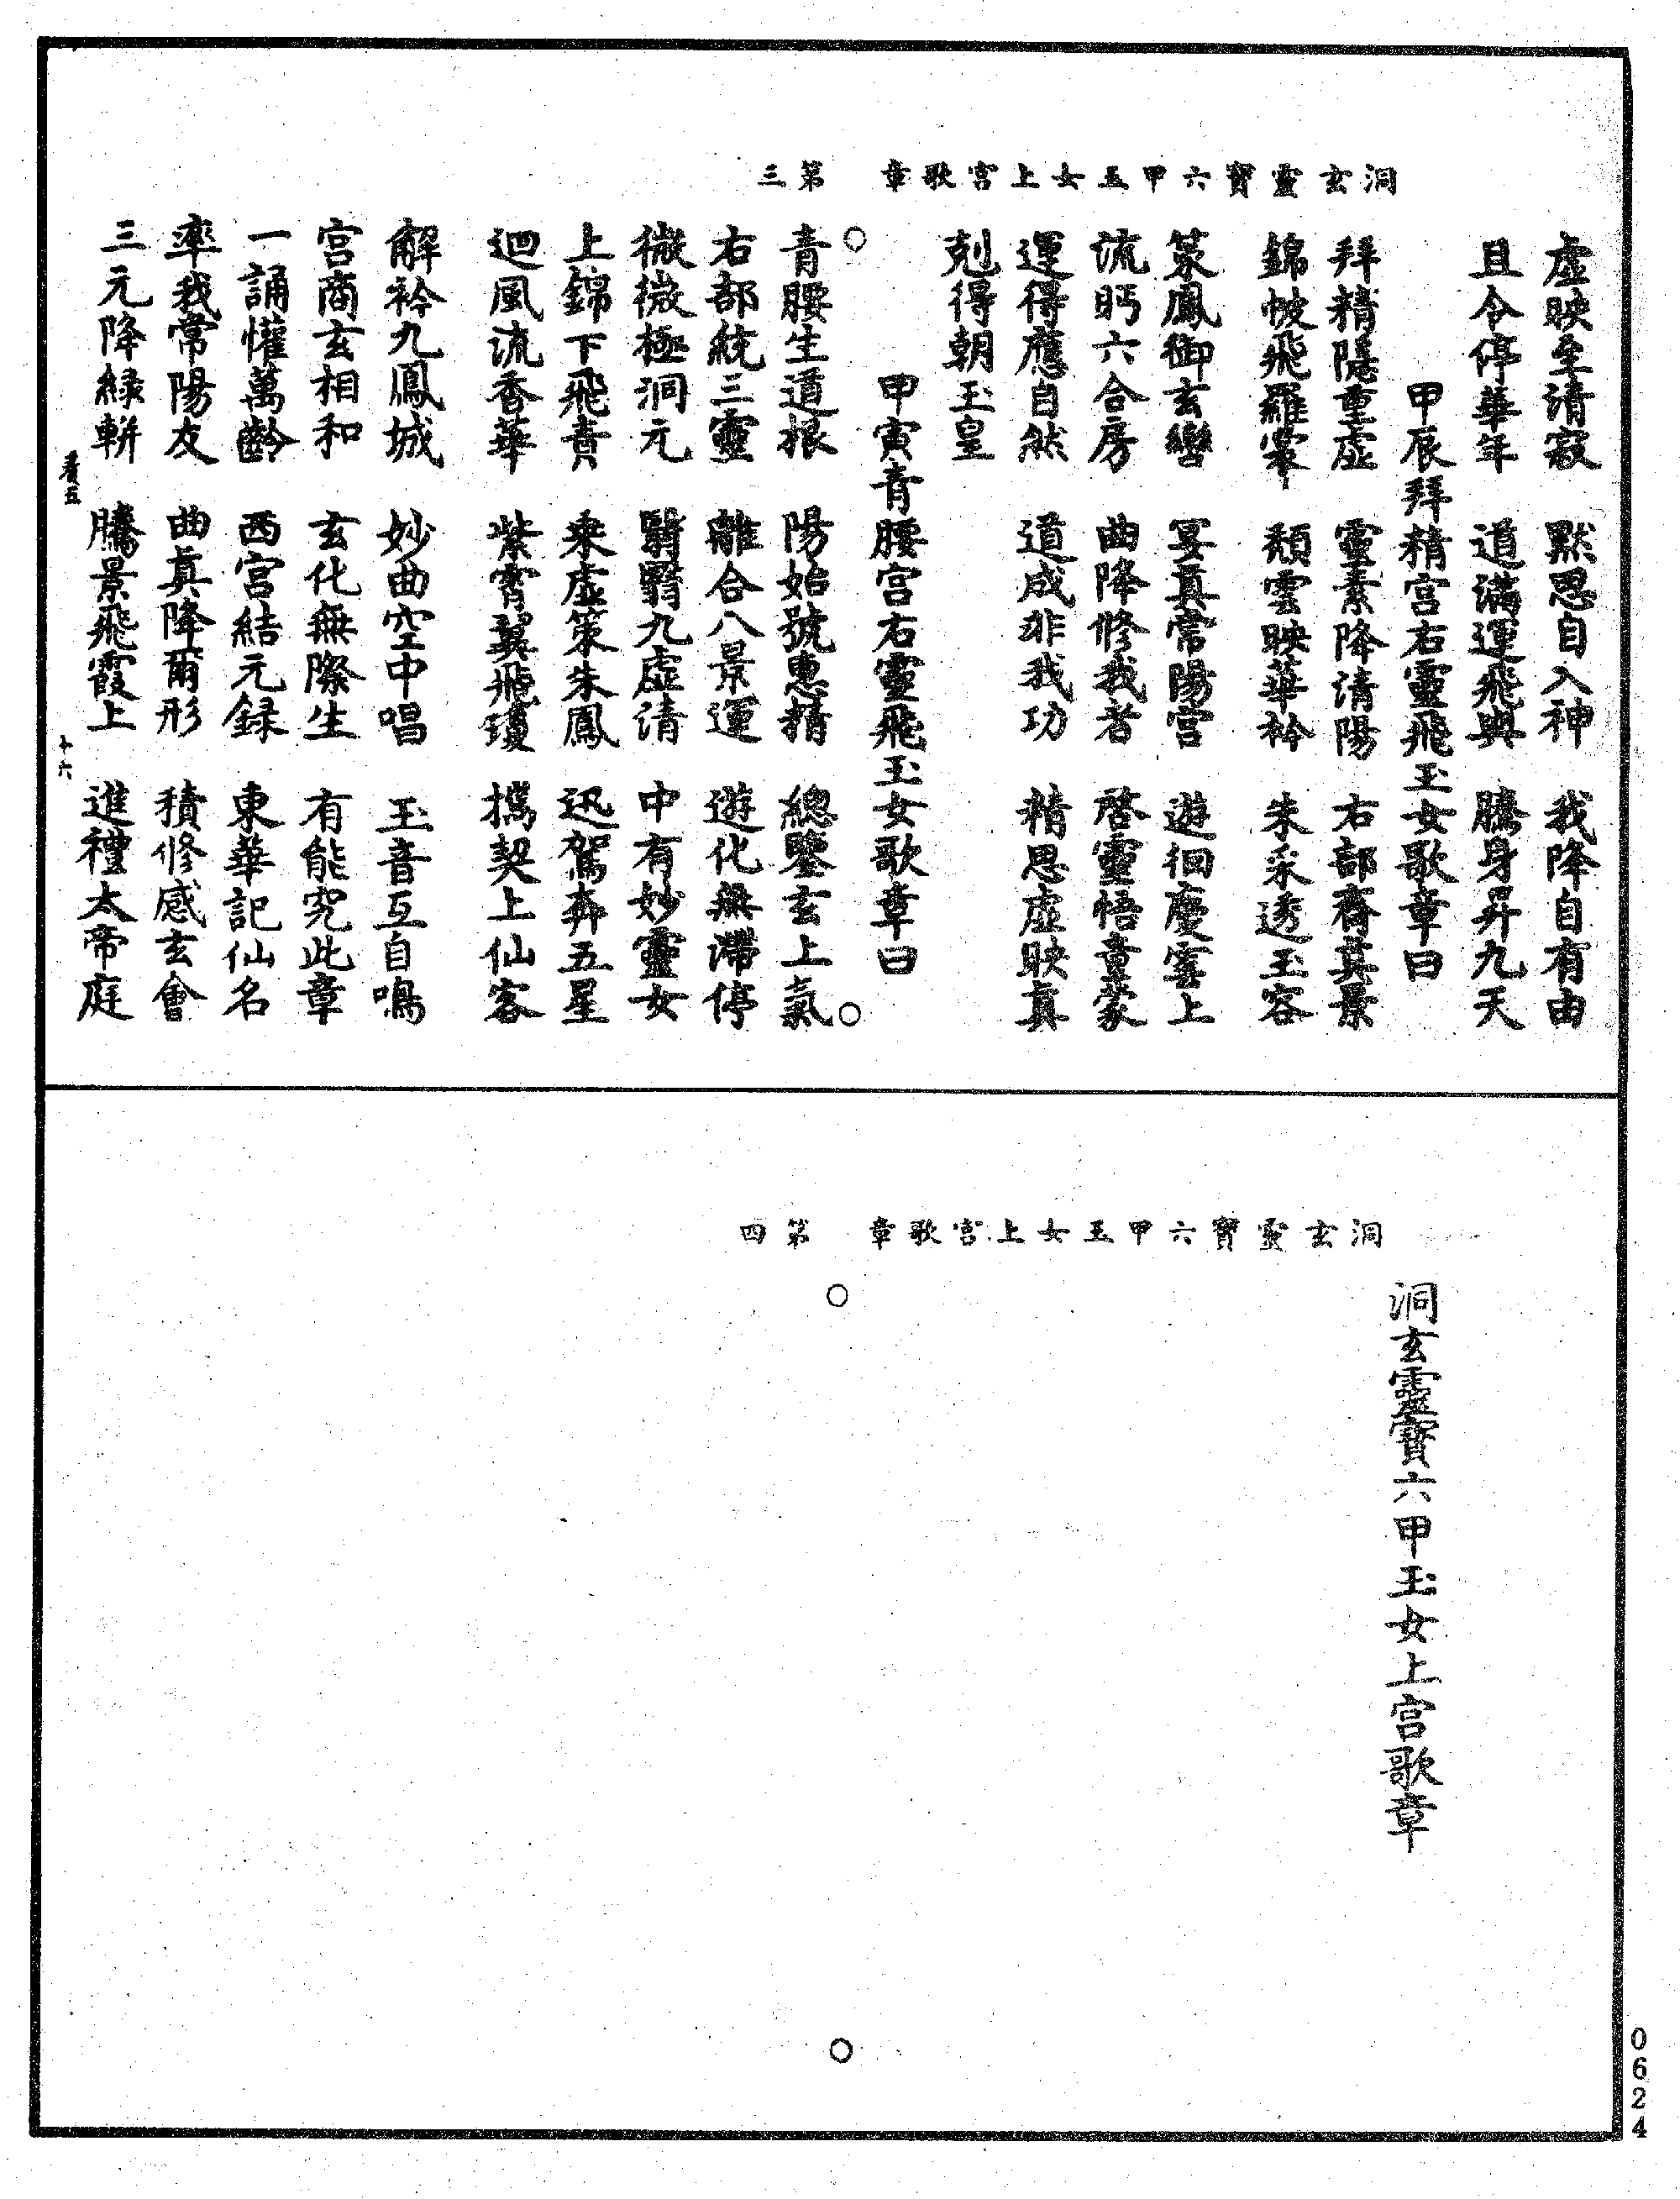 洞玄靈寶六甲玉女上宮歌章　第三
虛映至清寂　默思自入神　我降自有由
且令停華年　道滿運飛輿　騰身昇九天
甲辰拜精宮右靈飛玉女歌章曰
拜精隱重虛　靈素降清陽　右部齊莫景
錦帔飛羅裙　頹雲映華衿　朱采透玉容
策鳳御玄轡　宴真常陽宮　遊徊慶霄上
流眄六合房　曲降修我者　啓靈悟童蒙
運得應自然　道成非我功　精思虛映真
剋得朝玉皇
甲寅青腰宮右靈飛玉女歌章曰
青腰生道根　陽始號惠精　總鑒玄上氣
右部統三靈　離合八景運　遊化無滯停
微微極洞元　翳翳九虛清　中有妙靈女
上錦下飛賁　乘虛策朱鳳　迅駕奔五星
迴風流香華　紫霄翼飛瓊　攜契上仙客
解衿九鳳城　妙曲空中唱　玉音互自鳴
宮商玄相和　玄化無際生　有能究此章
一誦懽萬齡　西宮結元録　東華記仙名
率我常陽友　曲真降爾形　積修感玄會
三元降緑軿　騰景飛霞上　進禮太帝庭
十六
洞玄靈寶六甲玉女上宮歌章　第四
洞玄靈寶六甲玉女上宮歌章
0624